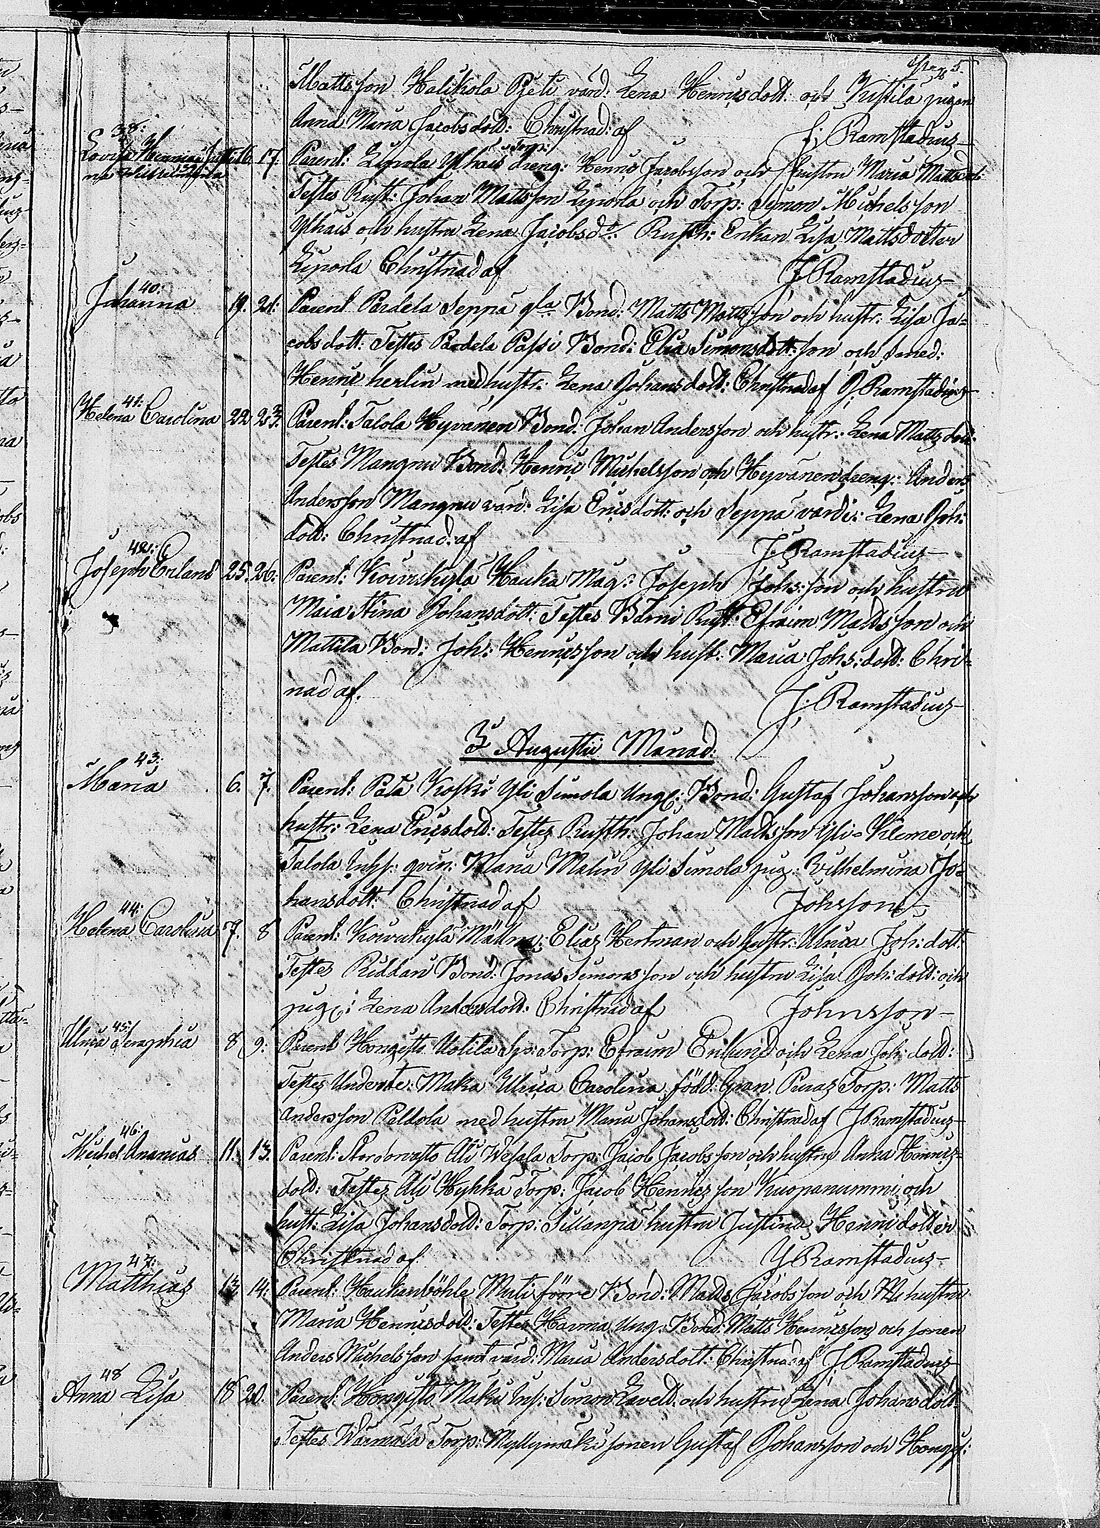 Mattsson Halikola Peti värd: Lena Henricsdott: och Kustila pigan
Anna Maria Jacobsdott: Christnad: af J: Ramstadius
38:
Lovisa 16. 17. Parent: Lepola Yhais dreng: Henric Jacobsson och hustru Maria Mattsd:
Testes Rust: Johan Mattsson Lepola och Torp: Simon Michelsson
Yhais och hustru Lena Jacobsd:r Rusth: Enkan Lisa Mattsdotter
Lepola Christnad af J Ramstadius
40:
Johanna 19. 21: Parent Pardela Seppä Bond: Matts Mattsson och hustr: Lisa Ja-
cobsdott: Testes Pardela Passi Bond: Elia Simonsson och smed:
Henric herlin med hustr: Lena Johansdott: Christnad af J. Ramstadius
41:
Helena Carolina 22 23. Parent: Talola Hyvänen Bond: Johan Andersson och hustr: Lena Mattsdott:
Testes Mangnu Bond: Henric Michelsson och Hyvänen dreng: Anders
Andersson Mangnu värd: Lisa Ericsdott: och Seppä värdi: Lena Joh:
dott: Christnad: af J: Ramstadius
42:
Joseph Erland 25. 26. Parent: Koivukylä Hauka Mag: Joseph Johsson och hustru
Maia Stina Johansdott: Testes Rust: Efraim Mattsson och
Mattila Bond: Joh: Henricsson och hust: Maria Johs:dott: Chri-
nad af. J: Ramstadius
3 Augustii Månad:
43:
Maria 6. 7. Parent: Koski Yli Simola Ung: Bond: Gustaf Johansson och
hustr: Lena Ericsdott: Testes Rusth: Johan Mattsson Yli-Kleme och
Talola Inhs: qvin: Maria Malin Yli Simola pig: Vilhelmina Jo-
hansdott: Christnad af Johsson
44:
Helena Carolina 7. 8 Parent: Koivukylä Elias Hertman och hustr: Ulrica Joh: dott:
Testes Riddari Bond: Jonas Simonsson och hustru Lisa Joh: dott: och
pig: Lena Andersdott: Christnad af Johnsson
45:
Ulrica Seraphia 8 9. Parent Hongisto Uotila Torp: Efraim Enlund och Lena Joh: dott:
Testes Maka Ulrica Carolina född: Gran Torp: Matts
Andersson Peldola med hustru Maria Johansdott: Christnad af J Ramstadius
46:
Michel Ananias 11. 13. Parent: Ali Wesala Torp: Jacob Jacobsson och hustru Anna Henrics-
dott: Testes Ali Hykkä Torp: Jacob Henricsson Kuopanummi och
hust: Lisa Johansdott: Torp: Sillanpä hustru Justina Henricdotter
Christnad af J Ramstadius
47:
Matthias 13 14. Parent: Haukanböhle Muti förre Bond: Matts Jacobsson och hustru
Maria Henricsdott: Testes Hanna Ung: Bond: Matts Henricsson och sonen
Anders Michelsson samt värd: Maria Andersdott: Christnad af J Ramstadius
48
Anna Lisa 18 20. Parent: Hongisto Maki Inh: Simon Laveld: och hustru Lena Johansdott:
Testes Warmala Torp: Myllymäki sonen Gustaf Johansson och Hongis: